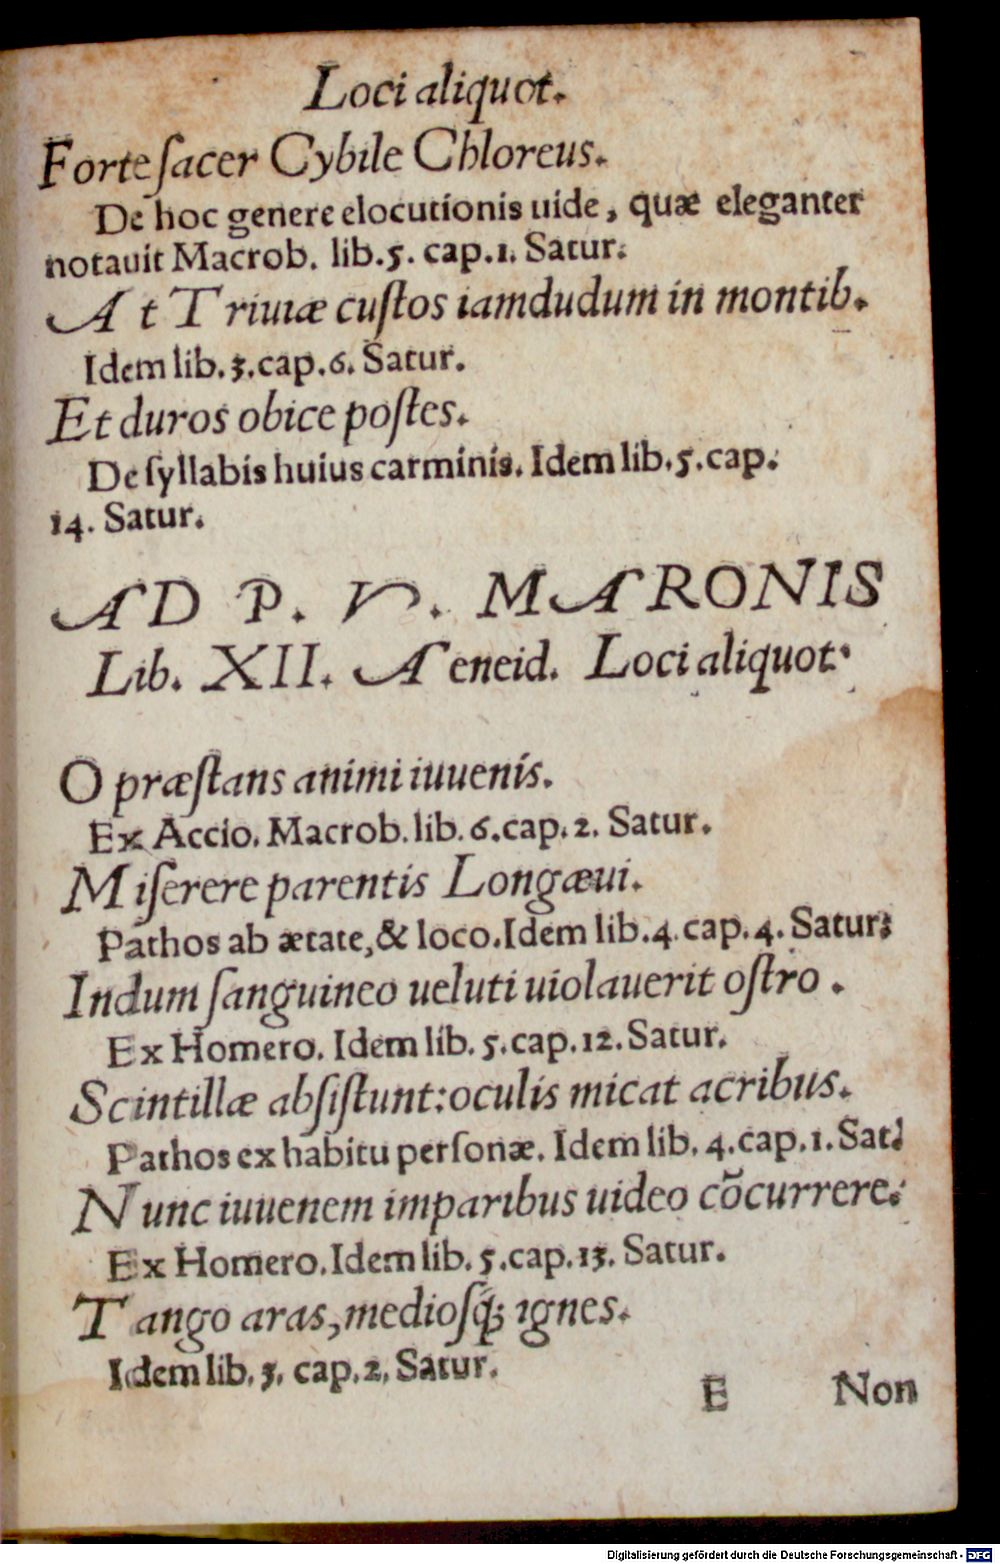 Loci aliquot.
Forte ſacer Cybile Chloreus.
De hoc genere elocutionis uide, quæ eleganter
notauit Macrob. lib. 5. cap. 1. Satur.
At Triuiæ cuſtos iamdudum in montib.
Idem lib. 3. cap. 6. Satur.
Et duros obice poſtes.
De ſyllabis huius carminis. Idem lib. 5. cap.
14. Satur.
AD P. V. MARONIS
Lib. XII. Aeneid. Loci aliquot.
O præſtans animi iuuenis.
Ex Accio. Macrob. lib. 6. cap. 2. Satur.
Miſerere parentis Longæui.
Pathos ab ætate, & loco. Idem lib. 4. cap. 4. Satur.
Indum ſanguineo ueluti uiolauerit oſtro.
Ex Homero. Idem lib. 5. cap. 12. Satur.
Scintillæ abſiſtunt: oculis micat acribus.
Pathos ex habitu perſonæ. Idem lib. 4. cap. 1. Sat.
Nunc iuuenem imparibus uideo cõcurrere.
Ex Homero. Idem lib. 5. cap. 13. Satur.
Tango aras, medioſq́; ignes.
Idem lib. 3. cap. 2. Satur.
E Non
Digitalisierung gefördert durch die Deutsche Forschungsgemeinschaft - DFG